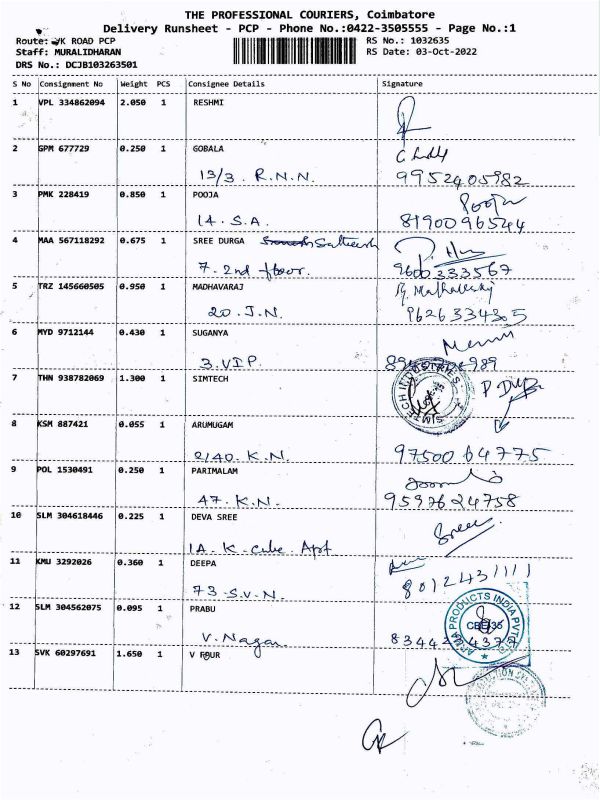 THE PROFESSIONAL COURIERS, Coimbatore
Delivery Runsheet - PCP - Phone No.:0422-3505555 - Page No.:1
Route: VK ROAD PCP RS No.: 1032635
Staff: MURALIDHARAN RS Date: 03-Oct-2022
DRS No.: DCJB103263501
S No Consignment No Weight PCS Consignee Details Signature
1 VPL 334862094 2.050 1 RESHMI
2 GPM 677729 0.250 1 GOBALA
13/3. R.N.N. 9952405982
3 PMK 228419 0.850 1 POOJA Pooja
14. S.A. 8190096544
4 MAA 567118292 0.675 1 SREE DURGA Satheesh
7. 2nd floor. 9600333567
5 TRZ 145660505 0.950 1 MADHAVARAJ
20. J.N. 9626334305
6 MYD 9712144 0.430 1 SUGANYA
3. VIP.
7 THN 938782069 1.300 1 SIMTECH SIMTECH INDUSTRIES
8 KSM 887421 0.055 1 ARUMUGAM
2/40. K.N. 9750064775
9 POL 1530491 0.250 1 PARIMALAM
47. K.N. 9597624758
10 SLM 304618446 0.225 1 DEVA SREE Sree
1A. K. Cube Apt
11 KMU 3292026 0.360 1 DEEPA
73. S.V.N. 8012431111
12 SLM 304562075 0.095 1 PRABU PRODUCTS INDIA PVT
V. Nagar
13 SVK 60297691 1.650 1 V FOUR